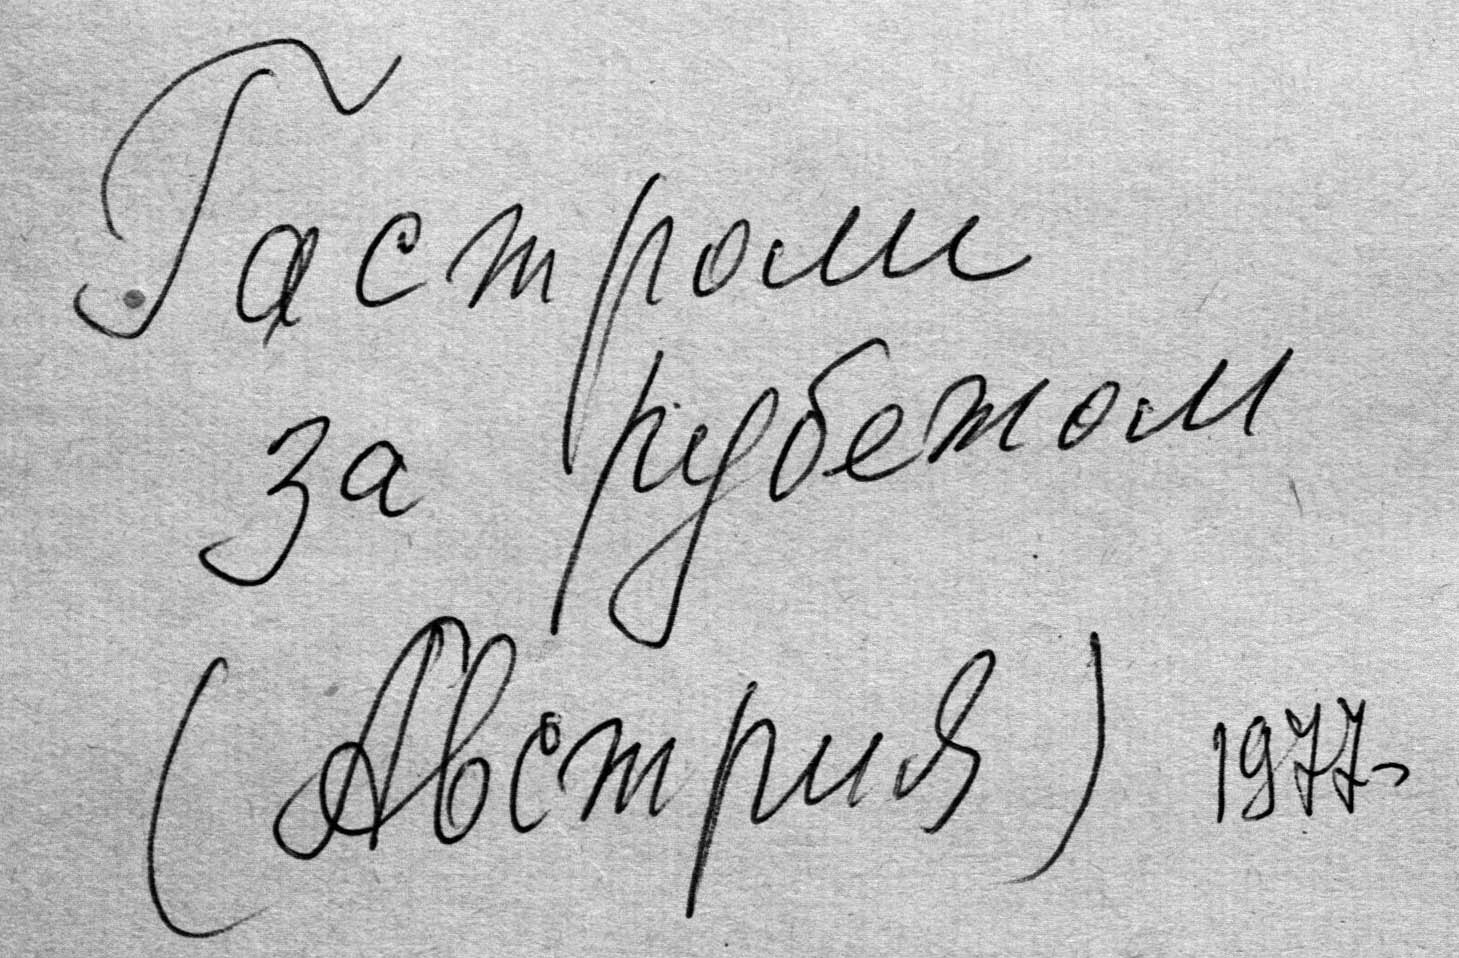 Гастроли
за рубежом
(Австрия) 1977г